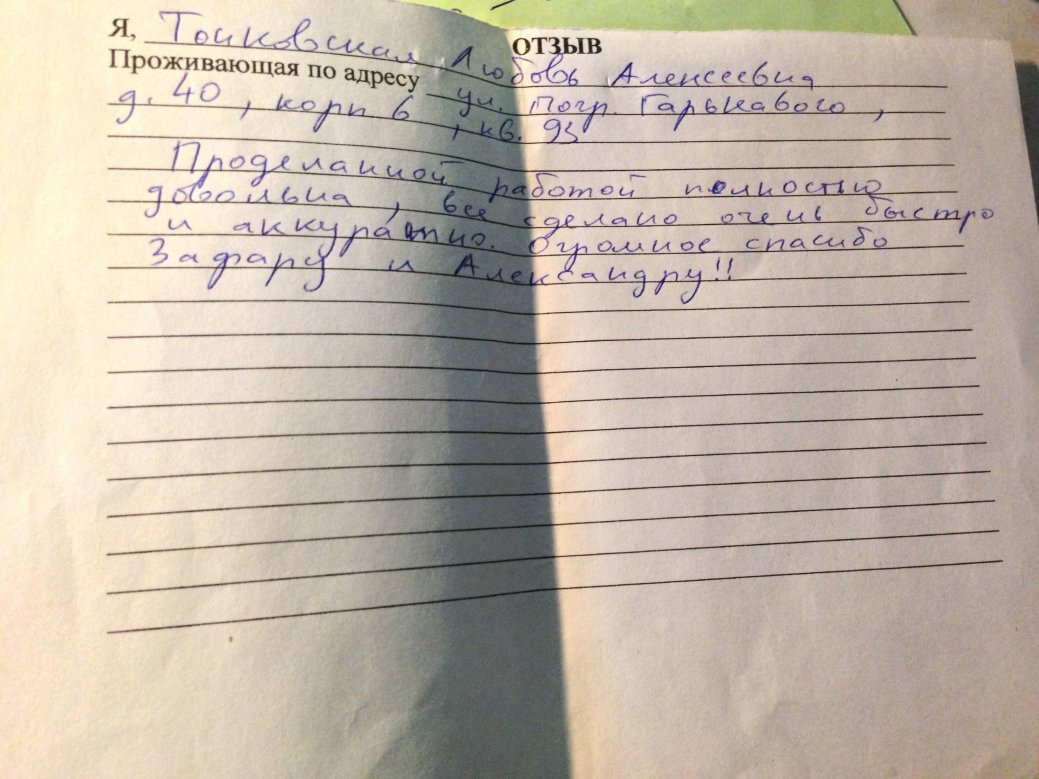 ОТЗЫВ
Я, Тонковская Любовь Алексеевна
Проживающая по адресу ул. Погр. Гарькавого,
д. 40, корп 6, кв. 93
Проделанной работой полностью
довольна, все сделано очень быстро
и аккуратно. Огромное спасибо
Зафару и Александру!!